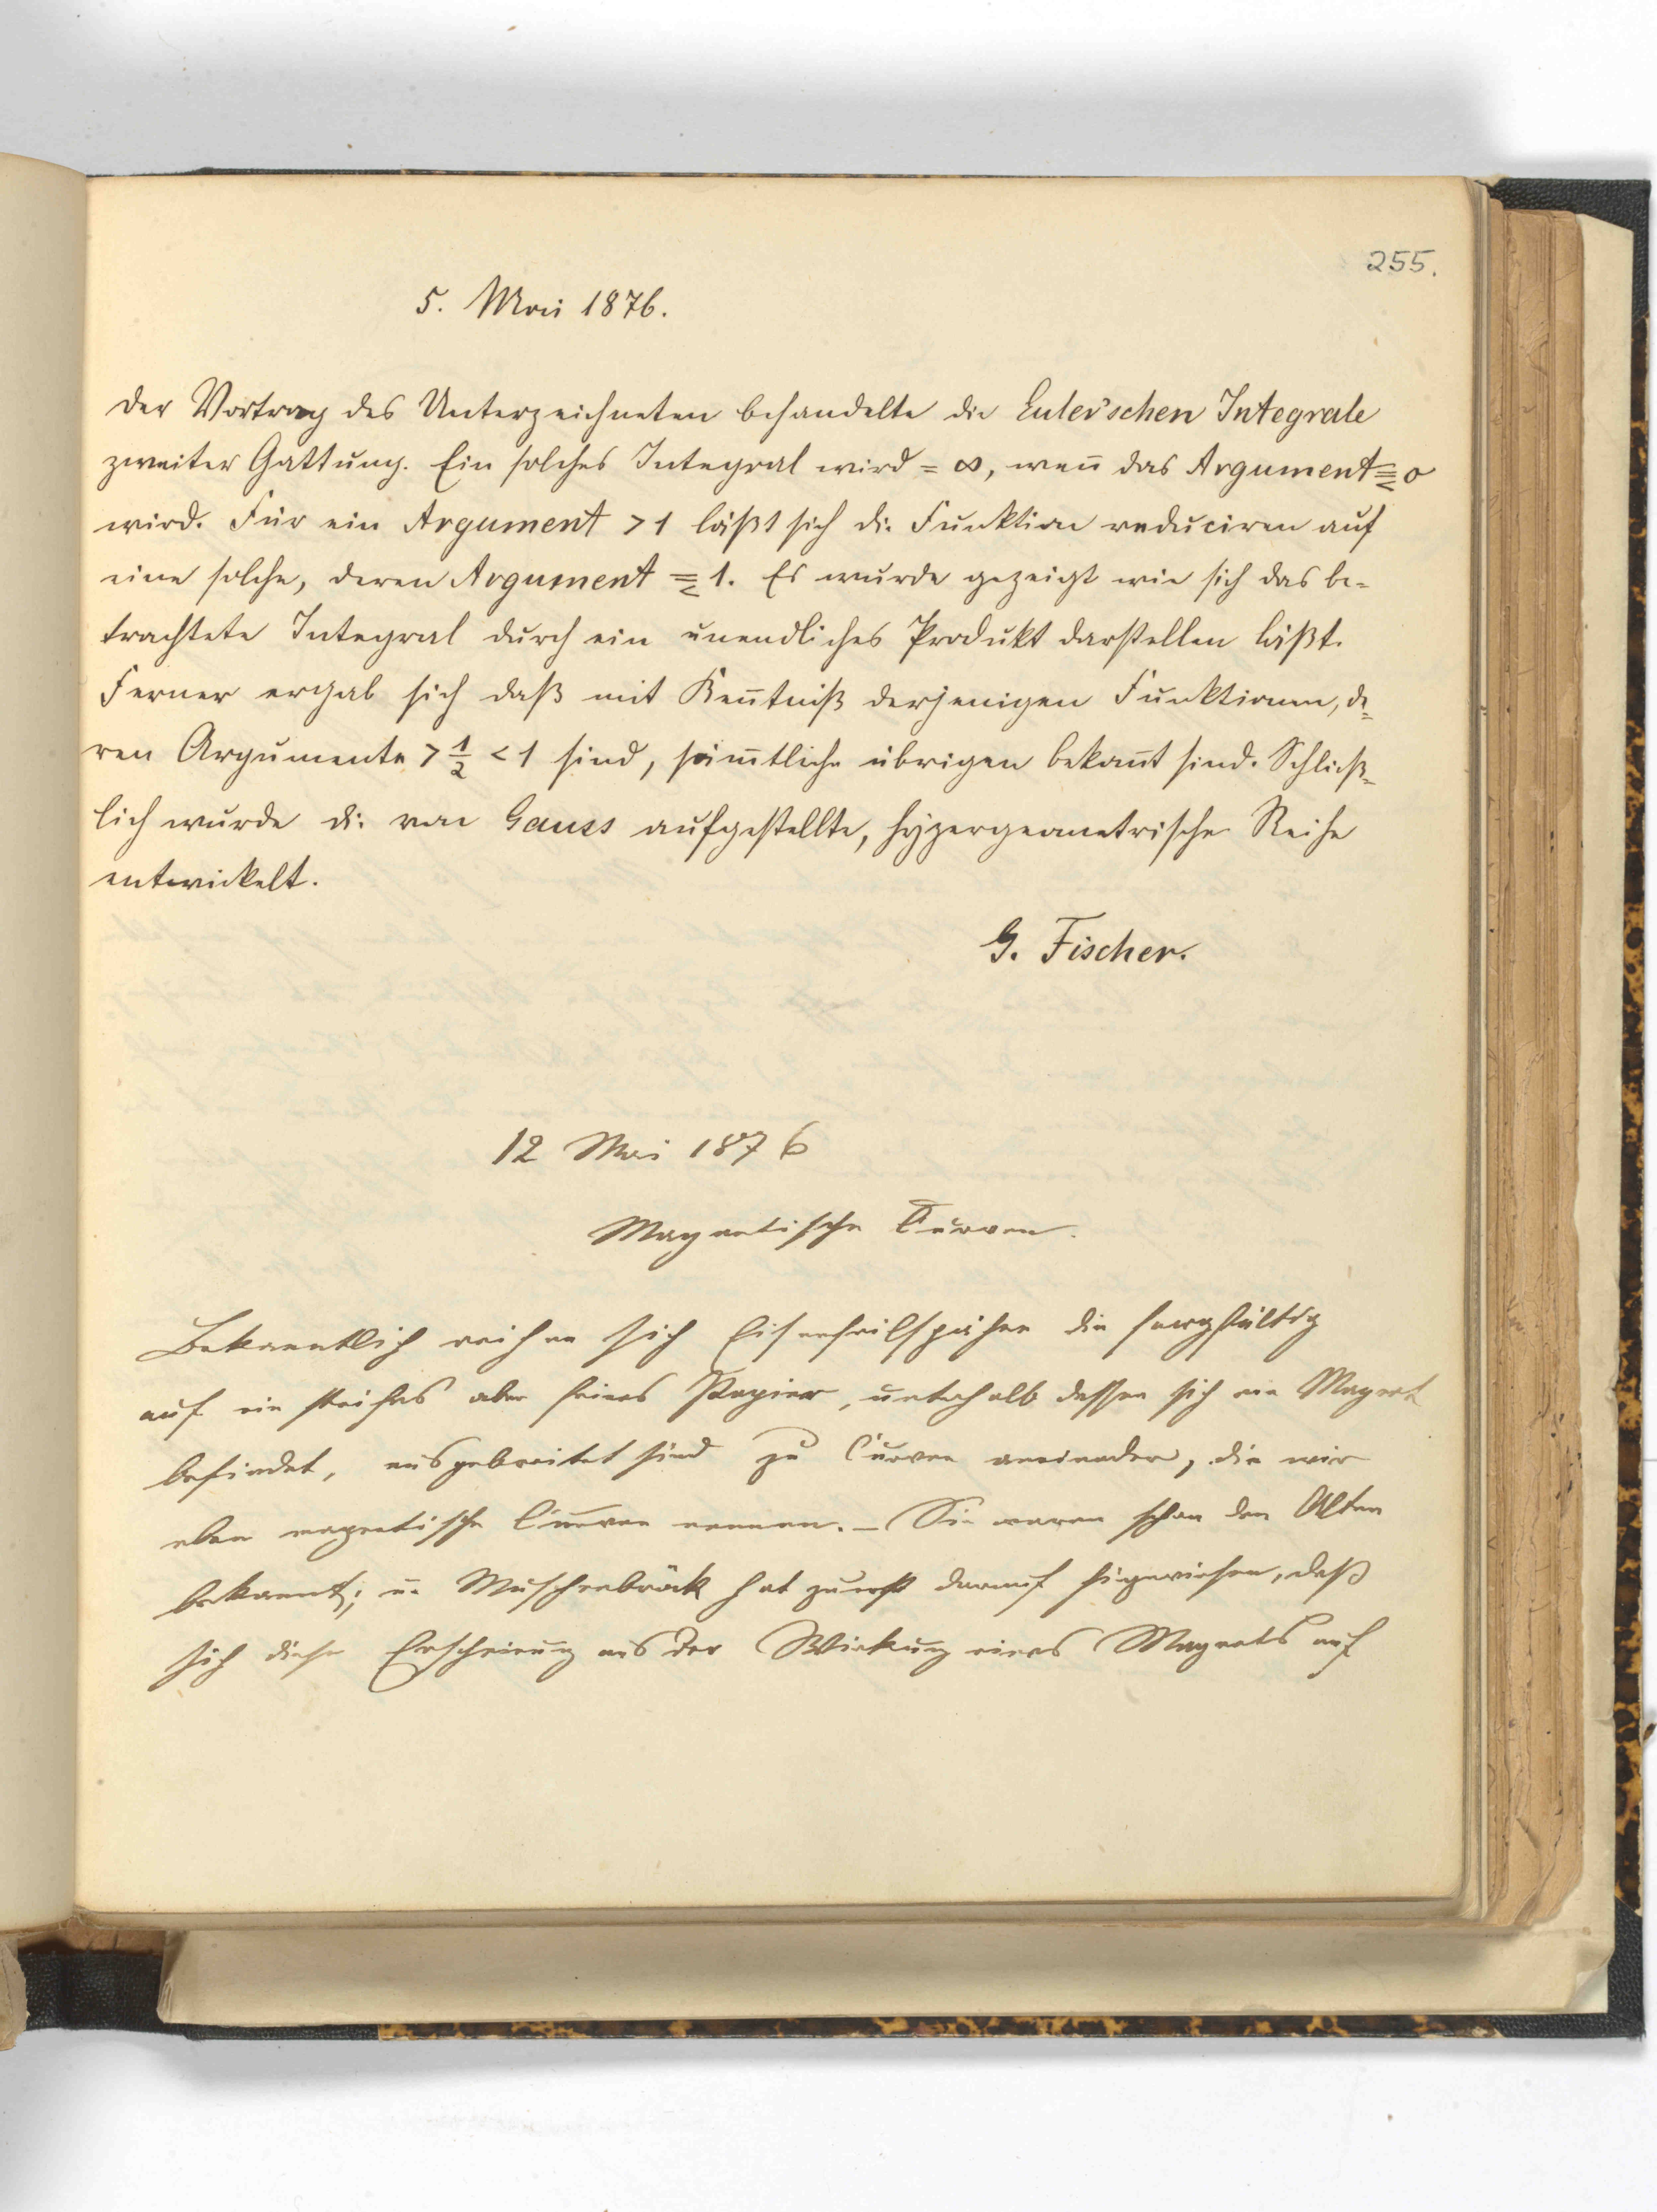 255.
5. Mai 1876.
Der Vortrag des Unterzeichneten behandelte die Euler'schen Integrale
zweiter Gattung. Ein solches Integral wird = ∞, wen̄ das Argument ≦ 0
wird. Für ein Argument > 1 läßt sich die Funktion reduciren auf
eine solche, deren Argument ≦ 1. Es wurde gezeigt wie sich das be-
trachtete Integral durch ein unendliches Produkt darstellen läßt.
Ferner ergab sich daß mit Ken̄tniß derjenigen Funktionen, de-
ren Argumente > 1/2 < 1 sind, säm̄tliche übrigen bekan̄t sind. Schließ-
lich wurde die von Gauss aufgestellte, hypergeometrische Reihe
entwickelt.
G. Fischer.
12 Mai 1876
Magnetische Curven.
Bekanntlich reihen sich Eisenfeilspähne die sorgfältig
auf ein steifes aber feines Papier, unterhalb dessen sich ein Magnet
befindet, ausgebreitet sind zu Curven aneinander, die wir
eben magnetische Curven nennen. – Sie waren schon den Alten
bekannt; u. Muschenbröck hat zuerst darauf hingewiesen, daß
sich diese Erscheinung aus der Wirkung eines Magnets auf